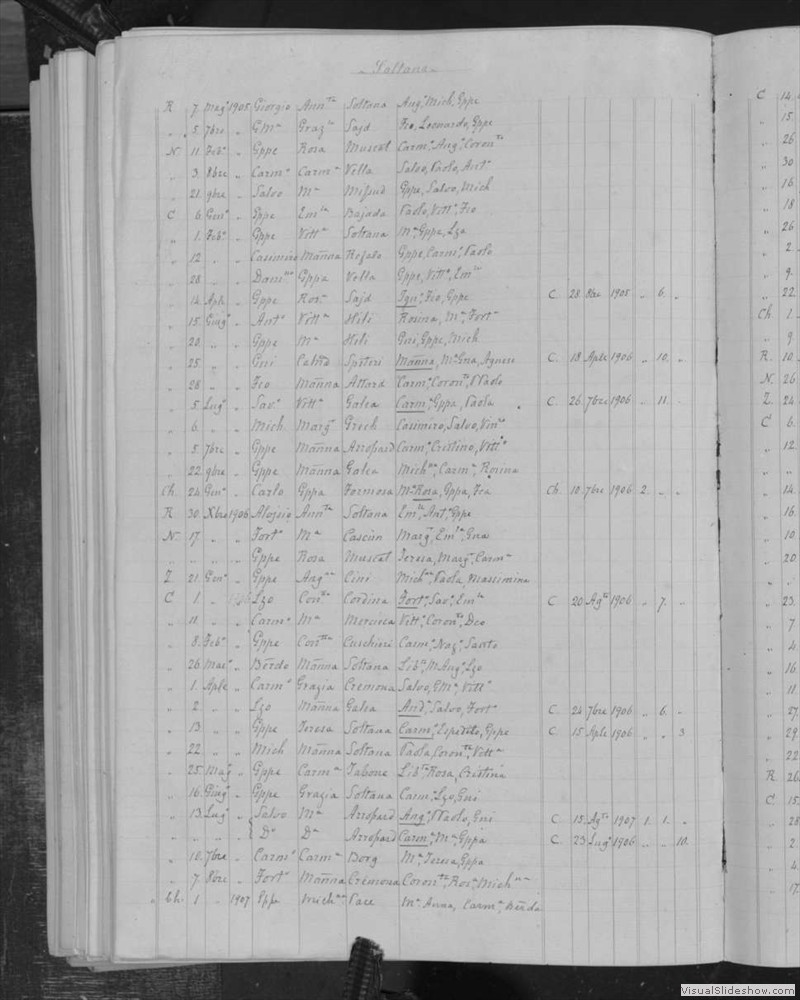 Soltana
R 7 Mag° 1905 Giorgio Ann.ta Soltana Ang, Mich, Gppe
" 5 7bre " G Ma Graz.a Sajd Fco, Leonardo, Gppe
N 11 Feb° " Gppe Rosa Muscat Carm, Ang, Coron.to
" 3 8bre " Carm° Carm.a Vella Salvo, Paolo, Ant°
" 21 9bre " Salvo Ma Mifsud Gppe, Salvo, Mich
C 6 Gen° " Gppe Em.la Bajada Paolo, Vitt°, Fco
" 1 Feb° " Gppe Vitt.a Soltana Ma, Gppe, Lza
" 12 " " Casimiro Mañna Refalo Gppe, Carm°, Paolo
" 28 " " Dom.co Gppa Vella Gppe, Vitt°, Em.la
" 14 Aple " Gppe Ros.a Sajd Ign°, Fco, Gppe C. 28 8bre 1905 " 6 "
" 15 Giug° " Ant° Vitt.a Hili Rosina, Ma, Fort°
" 20 " " Gppe Ma Hili Gni, Gppe, Mich
" 25 " " Gni Spiteri Mañna, Ma Gna, Agnese C. 18 Aple 1906 " 10 "
" 28 " " Fco Mañna Attard Carm°, Coron.to, Paolo
" 5 Lug° " Sav° Vitt.a Galea Carm, Gppa, Paola C. 26 7bre 1906 " 11 "
" 6 " " Mich Marg.a Grech Casimiro, Salvo, Vin.zo
" 5 7bre " Gppe Mañna Arropard Carm, Cristino, Vitt°
" 22 9bre " Gppe Mañna Galea Mich, Carm, Rosina
Ch. 24 Gen° " Carlo Gppa Formosa Ma Rosa, Gppa, Fca Ch. 10 7bre 1906 2 " "
R 30 Xbre 1906 Aloisio Ann.ta Soltana Em.la, Ant°, Gppe
N 17 " " Fort° Ma Cascun Marg, Em.la, Gna
" " " " Gppe Rosa Muscat Teresa, Marg, Carm.a
Z 21 Gen° " Gppe Ang.la Cini Mich, Paola, Massimina
C 1 " 1906 Lzo Con.ta Cordina Fort°, Sav°, Em.la C 20 Ag.to 1906 " 7 "
" 11 " " Carm° Ma Mercieca Vitt°, Coron.to, Deo
" 8 Feb° " Gppe Con.tta Cuschieri Carm, Naz°, Santo
" 26 Mar° " Bordo Mañna Soltana Lib.a, M Ang, Lzo
" 1 Aple " Carm° Grazia Cremona Salvo, G Ma, Vitt°
" 2 " " Lzo Mañna Galea And, Salvo, Fort° C. 24 7bre 1906 " 6 "
" 13 " " Gppe Teresa Soltana Carm, Espedito, Gppe C. 15 Aple 1906 " " 3
" 22 " " Mich Mañna Soltana Paola, Coron.to, Vitt.a
" 25 Mag° " Gppe Carm.a Tabone Lib.a, Rosa, Cristina
" 16 Giug° " Gppe Grazia Soltana Carm, Lzo, Gni
" 13 Lug° " Salvo Ma Arropard Ang, Paolo, Gni C 15 Ag.to 1907 1 1 "
" " " " D° Da Arropard Carm, Ma Gppa C. 23 Lug° 1906 " " 10
" 10 7bre " Carm° Carm.a Borg Ma, Teresa, Gppa
" 7 8bre " Fort° Mañna Cremona Coron.to, Ros.a, Mich
Ch. 1 " 1907 Gppe Mich Pace Ma Anna, Carm
C 14
" 15
" 26
" 30
" 16
" 18
" 26
" 2
" 9
" 22
Ch. 1
" 9
R 10
N 26
Z 24
C 6
" 12
" 14
" 16
" 10
" 20
" 23
" 7
" 4
" 16
" 11
" 27
" 29
" 22
R 26
C 15
" 28
" 2
" 4
" 17
VisualSlideshow.com